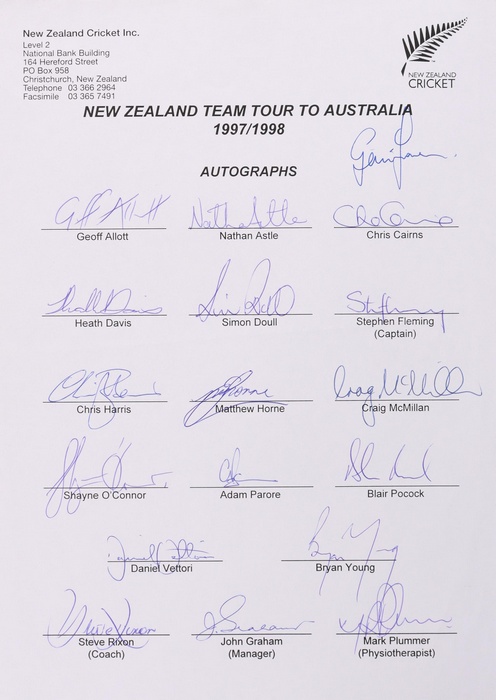 New Zealand Cricket Inc.
Level 2
National Bank Building
164 Hereford Street
PO Box 958
Christchurch, New Zealand
Telephone 03 366 2964
Facsimile 03 365 7491
NEW ZEALAND
CRICKET
NEW ZEALAND TEAM TOUR TO AUSTRALIA
1997/1998
AUTOGRAPHS
Geoff Allott Nathan Astle
Geoff Allott Nathan Astle Chris Cairns
Heath Davis Simon Doull Stephen Fleming
(Captain)
Craig McMillan
Chris Harris Matthew Horne Craig McMillan
Shayne O'Connor Adam Parore Blair Pocock
Daniel Vettori Bryan Young
Daniel Vettori Bryan Young
Steve Rixon John Graham Mark Plummer
(Coach) (Manager) (Physiotherapist)